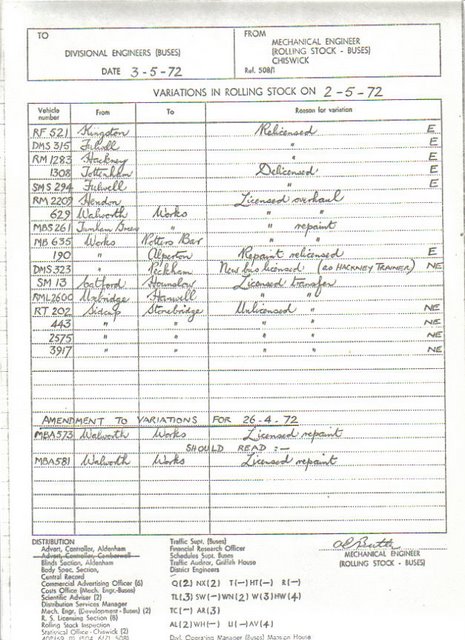 TO
DIVISIONAL ENGINEERS (BUSES)
DATE 3-5-72
FROM
MECHANICAL ENGINEER
(ROLLING STOCK - BUSES)
CHISWICK
Ref. 508/1
VARIATIONS IN ROLLING STOCK ON 2-5-72
Vehicle number From To Reason for variation
RF 521 Kingston Relicensed E
DMS 315 Fulwell " E
RM 1283 Hackney " E
1308 Tottenham Delicensed E
SMS 294 Fulwell " E
RM 2209 Hendon Licensed overhaul
629 Walworth Works " "
MBS 261 Turnham Green " " repaint
MB 635 Works Potters Bar " "
190 " Alperton Repaint relicensed E
DMS 323 " Peckham New bus licensed (as HACKNEY TRAINER) NE
SM 13 Catford Hounslow Licensed transfer
RML 2600 Uxbridge Hanwell " "
RT 202 Sidcup Stonebridge Unlicensed " NE
443 " " " " NE
2575 " " " " NE
3917 " " " " NE
AMENDMENT TO VARIATIONS FOR 26-4-72
MBA 573 Walworth Works Licensed repaint
SHOULD READ :-
MBA 581 Walworth Works Licensed repaint
DISTRIBUTION
Advert. Controller, Aldenham
Advert. Controller, Camberwell
Blinds Section, Aldenham
Body Spec. Section,
Central Record
Commercial Advertising Officer (6)
Costs Office (Mech. Engr.-Buses)
Scientific Adviser (2)
Distribution Services Manager
Mech. Engr. (Development - Buses) (2)
R. S. Licensing Section (8)
Rolling Stock Inspection
Statistical Office - Chiswick (2)
Traffic Supt. (Buses)
Financial Research Officer
Schedules Supt. Buses
Traffic Auditor, Griffith House
District Engineers
Q(2) NX(2) T(-) HT(-) R(-)
TL(3) SW(-) WN(2) W(3) HW(4)
TC(-) AR(3)
AL(2) WH(-) U(-) AV(4)
Divl. Operating Manager (Buses) Mansion House
MECHANICAL ENGINEER
(ROLLING STOCK - BUSES)